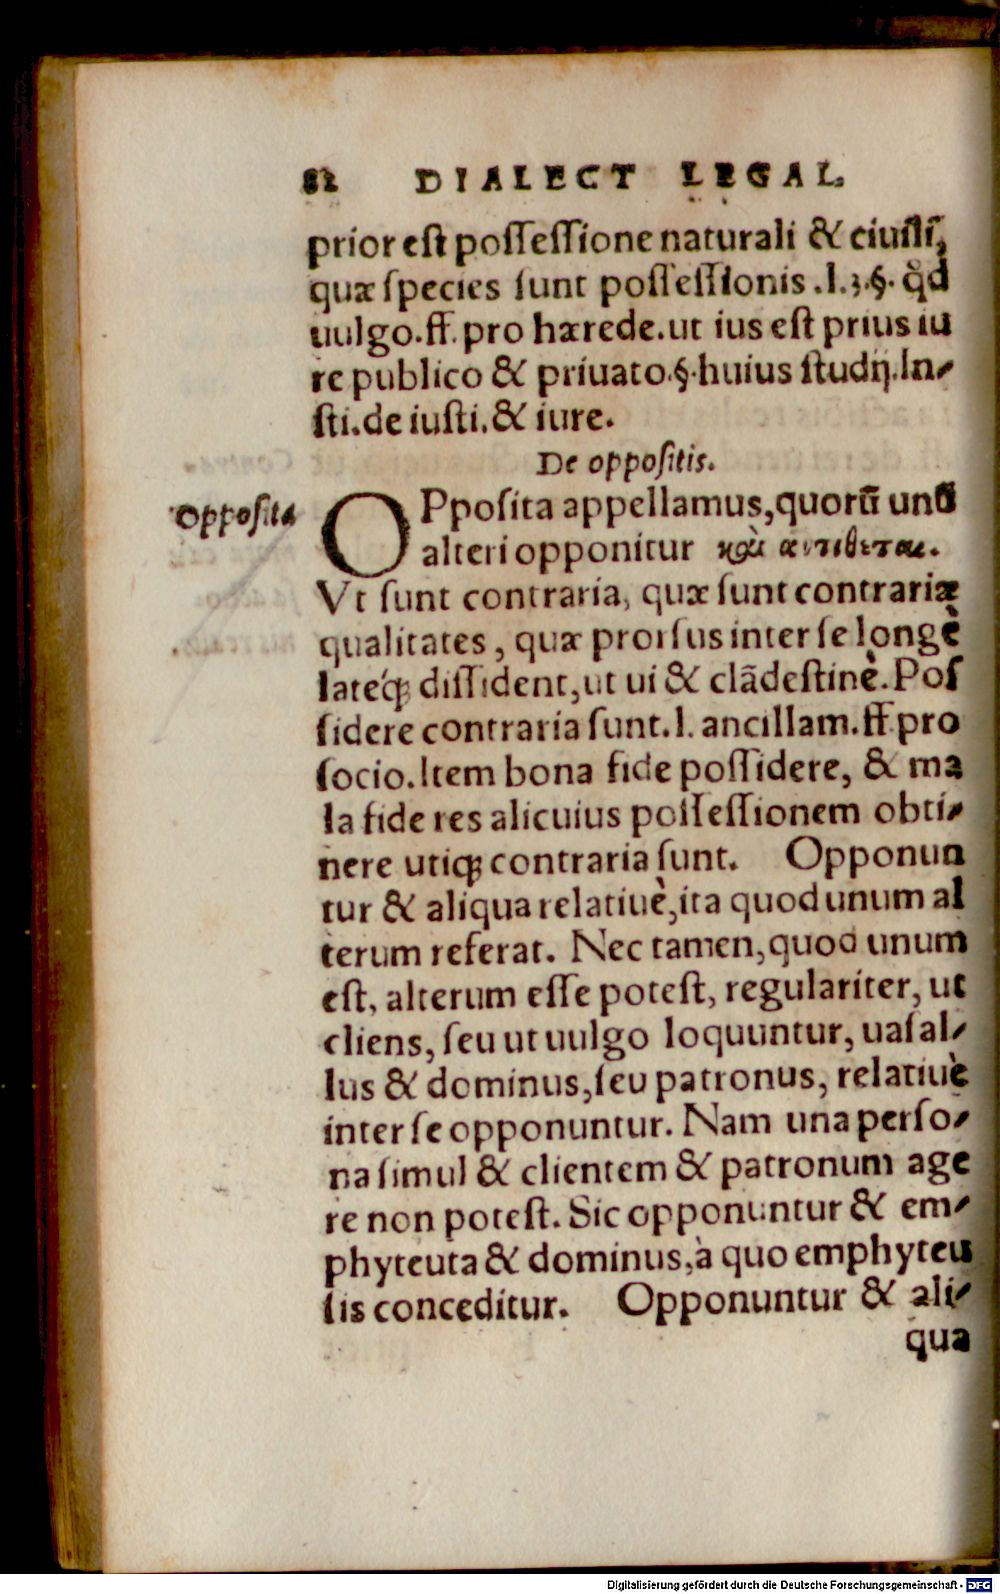 82 DIALECT LEGAL.
prior est possessione naturali & ciuili,
quæ species sunt possessionis .l.3.§. qd
uulgo.ff.pro hærede.ut ius est prius iu
re publico & priuato.§.huius studij.In-
sti.de iusti.& iure.
De oppositis.
Opposita
OPposita appellamus,quorũ unũ
alteri opponitur καὶ αντιθεται.
Vt sunt contraria, quæ sunt contrariæ
qualitates, quæ prorsus inter se longè
lateq́; dissident,ut ui & clãdestinè.Pos
sidere contraria sunt.l.ancillam.ff.pro
socio.Item bona fide possidere, & ma
la fide res alicuius possessionem obti-
nere utiq; contraria sunt. Opponun
tur & aliqua relatiuè,ita quod unum al
terum referat. Nec tamen,quod unum
est, alterum esse potest, regulariter, ut
cliens, seu ut uulgo loquuntur, uasal-
lus & dominus,seu patronus, relatiuè
inter se opponuntur. Nam una perso-
na simul & clientem & patronum age
re non potest. Sic opponuntur & em-
phyteuta & dominus,à quo emphyteu
sis conceditur. Opponuntur & ali-
qua
Digitalisierung gefördert durch die Deutsche Forschungsgemeinschaft - DFG